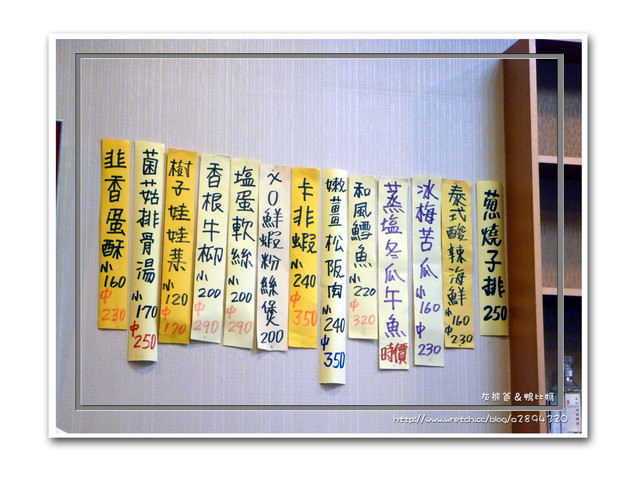 韭香蛋酥 小160 中230
菌菇排骨湯 小170 中250
樹子娃娃菜 小120 中170
香根牛柳 小200 中290
塩蛋軟絲 小200 中290
XO鮮蝦粉絲煲 200
卡非蝦 小240 中350
嫩薑松阪肉 小240 中350
和風鱈魚 小220 中320
蒸塩冬瓜午魚 時價
冰梅苦瓜 小160 中230
泰式酸辣海鮮 小160 中230
蔥燒子排 250
灰熊爸&鴨比媽
http://www.wretch.cc/blog/a2894320